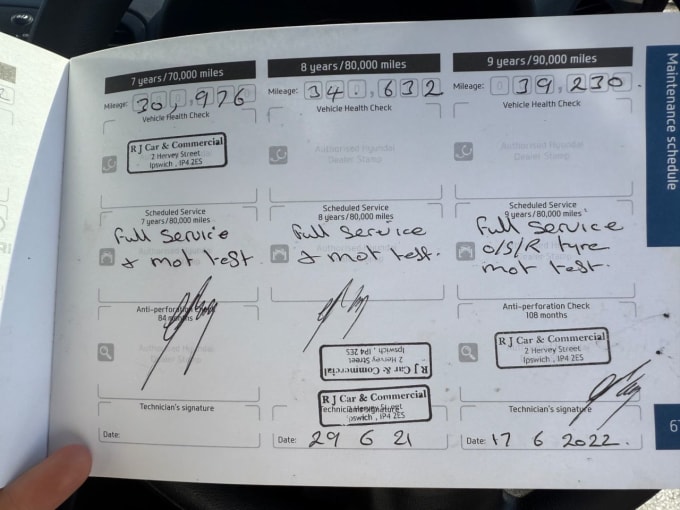 7 years/70,000 miles
Mileage: 30,976
Vehicle Health Check
R J Car & Commercial
2 Hervey Street
Ipswich , IP4 2ES
Scheduled Service
7 years/80,000 miles
Full Service
& mot test.
Anti-perforation
84 months
Technician's signature
Date:
8 years/80,000 miles
Mileage: 34,632
Vehicle Health Check
Authorised Hyundai
Dealer Stamp
Scheduled Service
8 years/80,000 miles
Full Service
& mot test.
R J Car & Commercial
2 Hervey Street
Ipswich , IP4 2ES
R J Car & Commercial
2 Hervey Street
Ipswich , IP4 2ES
Technician's signature
Date: 29 6 21
9 years/90,000 miles
Mileage: 39,230.
Vehicle Health Check
Authorised Hyundai
Dealer Stamp
Scheduled Service
9 years/80,000 miles
Full Service
O/S/R tyre
mot test.
Anti-perforation Check
108 months
R J Car & Commercial
2 Hervey Street
Ipswich , IP4 2ES
Technician's signature
Date: 17 6 2022.
Maintenance schedule